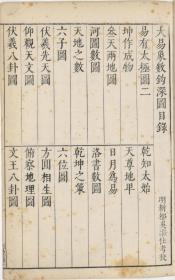 大易象數鉤深圖目錄
明新都吳繼仕考校
易有太極圖二
乾知太始
坤作成物
天尊地卑
叅天兩地圖
日月爲易
河圖數圖
洛書數圖
天地之數
乾坤之策
六子圖
六位圖
伏羲先天圖
方圓相生圖
仰觀天文圖
俯察地理圖
伏羲八卦圖
文王八卦圖